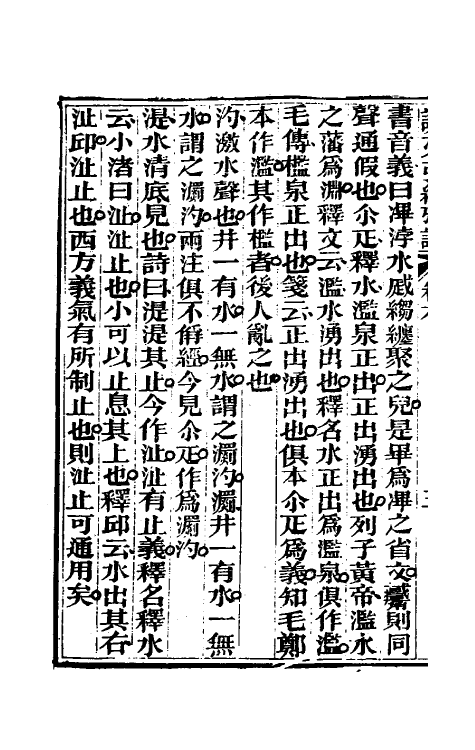 書音義曰滭浡水𡾰縐纏聚之皃是畢爲滭之省文觱則同
聲通假也尒疋釋水濫泉正出正出湧出也列子黃帝濫水
之藩爲淵釋文云濫水湧出也釋名水正出爲濫泉俱作濫
毛傳檻泉正出也箋云正出湧出也俱本尒疋爲義知毛鄭
本作濫其作檻者後人亂之也
汋激水聲也井一有水一無水謂之瀱汋瀱井一有水一無
水謂之瀱汋兩注俱不偁經今見尒疋作爲瀱汋
湜水清底見也詩曰湜湜其止今作沚沚有止義釋名釋水
云小渚曰沚沚止也小可以止息其上也釋邱云水出其右
沚邱沚止也西方義氣有所制止也則沚止可通用矣